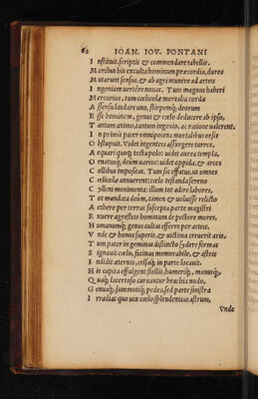 62 IOAN. IOV. PONTANI
Instituit scriptis & commendare tabellis.
Moribus his exculta hominum præcordia, duros
Mutarunt sensus, & ab agri munere ad arteis
Ingenium uertêre nouas. Tum magnus haberi
Mercurius, tum cœlicolæ mortalia corda
Assensu laudare uno, stirpemq; deorum
Esse hominem, genus & cœlo deducere ab ipso,
Tantum animo, tantum ingenio, ac ratione ualerent.
In primis pater omnipotens mortalibus orsis
Obstupuit. Videt ingenteis assurgere turres,
Aequari quoq; tecta polo: uidet aurea templa,
Ornatumq; diuum uarios: uidet oppida, & arces
Collibus impositas. Tum sic effatus, at omnes
Cœlicolæ annuerunt: cœlo testanda sereno
Cylleni monimenta: illum tot adire labores,
Tot mandata deûm, tamen & uoluisse relicto
Aethere per terras suscepta parte magistri
Exuere agresteis hominum de pectore mores,
Humanumq; genus cultas efferre per arteis.
Vnde & honor superis, & uictima creuerit aris.
Tum pater in geminas distincto sydere formas
Signauit cœlo, facinus memorabile, & astris
Indidit æternis, celsaq; in parte locauit.
His capita effulgent stellis, humeriq;, manusq;,
Quaq; lacertoso curuantur brachia nodo,
Genuaq; summotiq; pedes, sed parte sinistra
Irradiat quo uix cœlo splendentius astrum,
Vnde